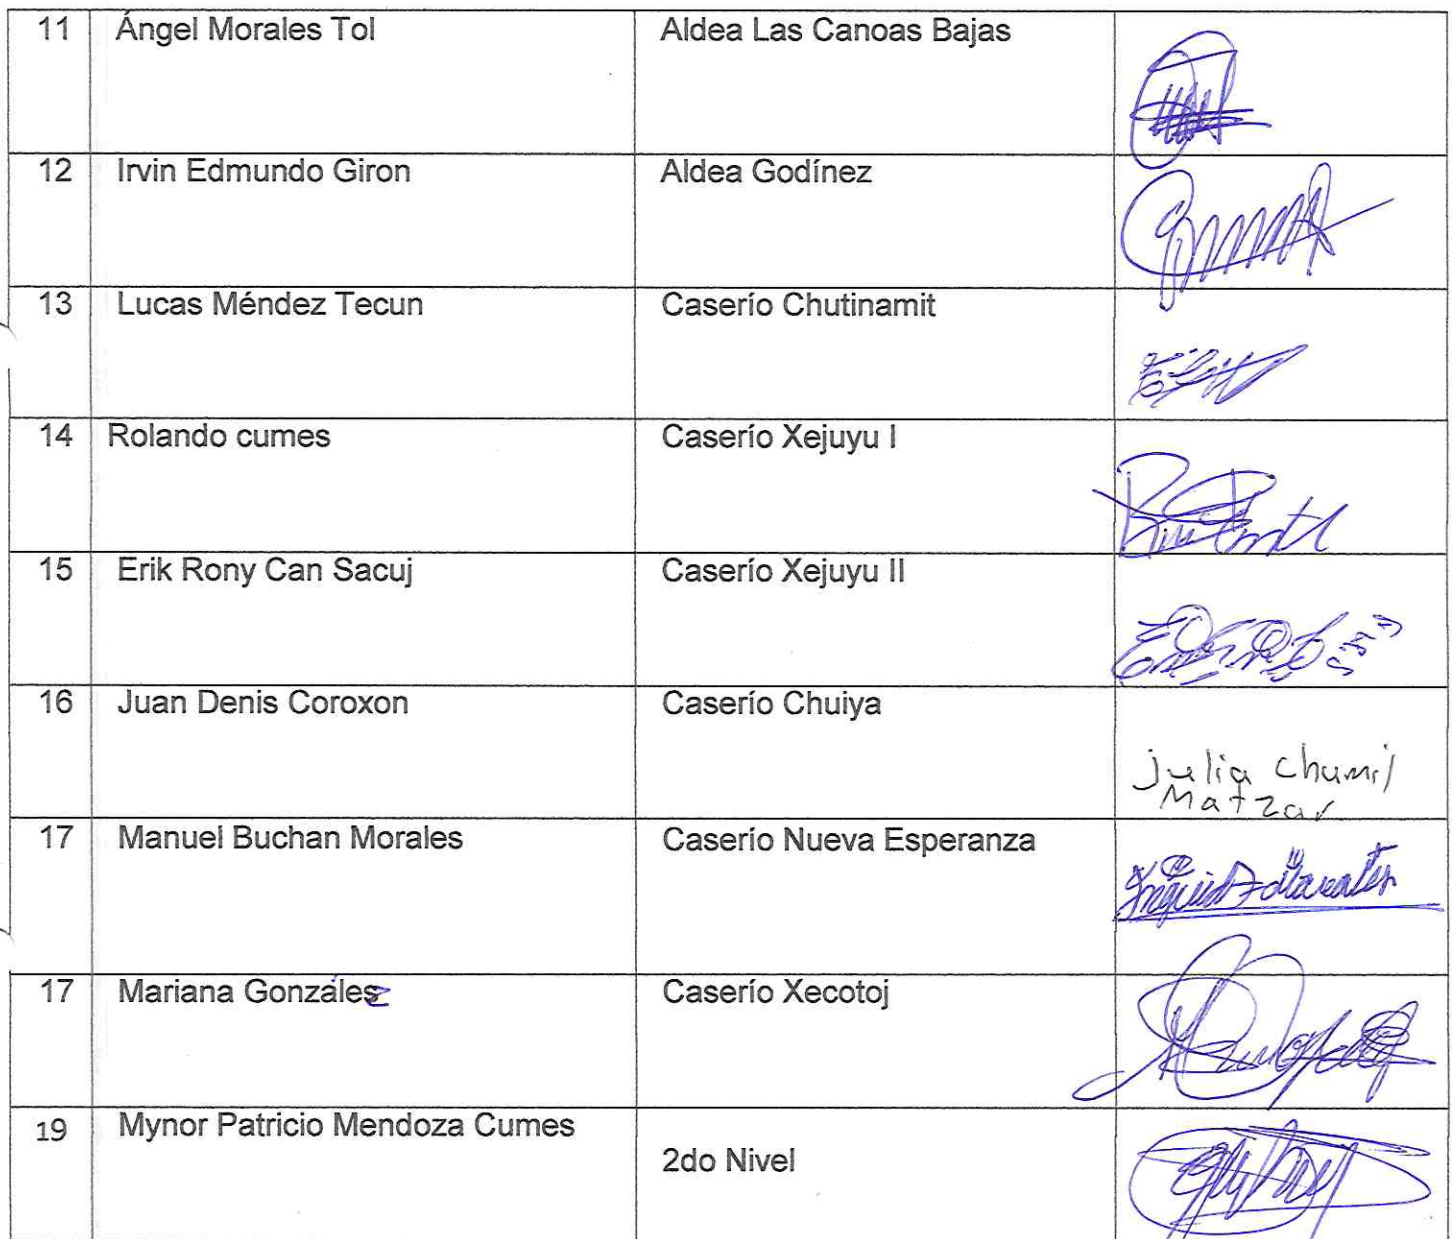 11 Ángel Morales Tol Aldea Las Canoas Bajas
12 Irvin Edmundo Giron Aldea Godínez
13 Lucas Méndez Tecun Caserío Chutinamit
14 Rolando cumes Caserío Xejuyu I
15 Erik Rony Can Sacuj Caserío Xejuyu II
16 Juan Denis Coroxon Caserío Chuiya
julia Chumil
Matzar
17 Manuel Buchan Morales Caserío Nueva Esperanza
17 Mariana Gonzálesz Caserío Xecotoj
19 Mynor Patricio Mendoza Cumes
2do Nivel